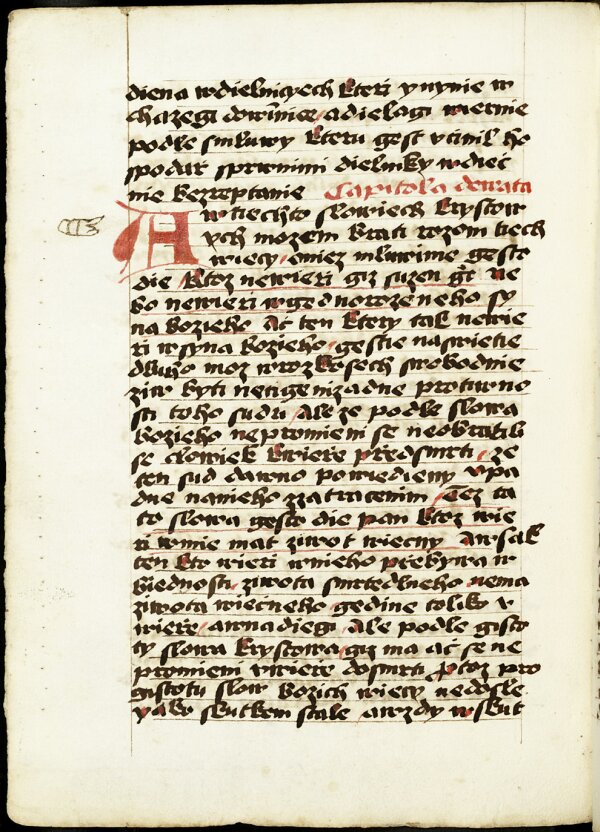 diena wdielniczech kteri y nynie w
chazegi dowinice, a dielagi wiernie
podle smluwy kteru gest vcinil ho
spodar sprwnimi dielniky w dieč
nie bezreptanie Capitola dewata
A w tiechto slowiech krystow
ych mozem brati rozom tiech
wiecy, o niez mluwime gesto
die, ktoz newieri giz suzen gt ne
bo newieri w gednorozeneho sy
na bozieho Ač ten ktery tak newie
ri w syna bozieho, gestie na swietie
dluho moz w rozkosech swobodnie
ziw byti neciegenizadne protiwno
sti toho sudu, Ale ze podle slowa
bozieho nepromiem se neobratili
se člowiek kwieře předsmrti, ze
ten sud dawno powiedieny vpa
dne nanieho zzatracenim, Tez ta
to slowa gesto die pan ktoz wie
ri w mie mat ziwot wiecny Awsak
ten kto wieri w nieho přebywa w
biednosti, ziwota smrtedlneho, nema
ziwota wiečneho, gedine toliko v
wieře, a w nadiegi, Ale podle gisto
ty slowa krystowa, giz ma ač se ne
promieni v wieře do smrti, protoz pro
gistotu slow bozich wiecy nedosle
yako skutkem stale a wzdy w skut